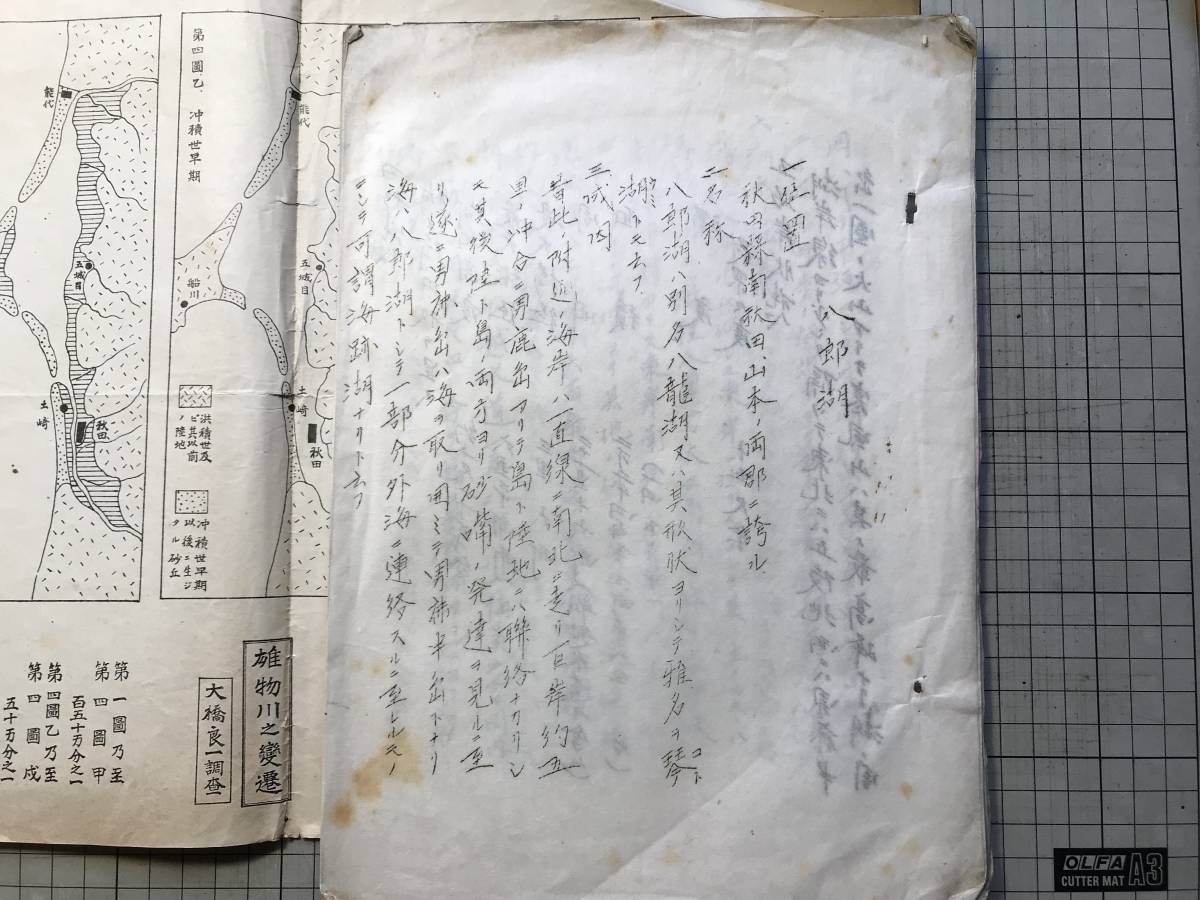 八郎湖
一、位置
秋田縣南秋田、山本ノ両郡ニ誇ル
二、名稱
八郎湖ハ別名八龍湖又ハ其形状ヨリシテ雅名ヲ琴
コト
湖トモ云フ
三、成因
昔此ノ附近ノ海岸ハ一直線ニ南北ニ走リ
里ノ沖合ニ男鹿島アリテ島ト陸地ニハ聯絡ナカリシ
モ其後陸ト島ノ両方ヨリ砂嘴ノ発達ヲ見ルニ至
リ遂ニ男鹿島ハ海ヲ取リ囲ミテ男鹿半島トナリ
海ハ八郎湖トシテ一部分外海ニ連絡スルニ至レルモノ
ニシテ可謂海跡湖ナリト云フ
第四圖乙 冲積世早期
能代
五城目
船川
土崎
秋田
洪積世及
ビ其以前
ノ陸地
冲積世早期
以後ニ生ジ
タル砂丘
能代
五城目
土崎
秋田
雄物川之變遷
大橋良一調査
第一圖乃至
第四圖甲
百五十万分之一
第四圖乙乃至
第四圖戊
五十万分之一
OLFA
CUTTER MAT A3